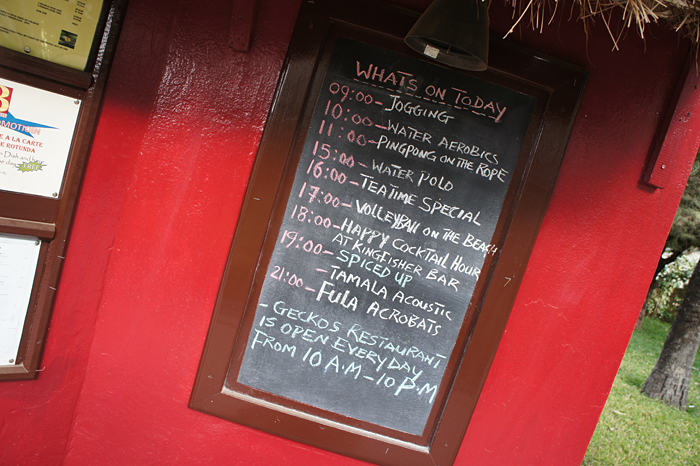 WHATS ON TODAY
09:00 - JOGGING
10:00 - WATER AEROBICS
11:00 - PINGPONG ON THE ROPE
15:00 - WATER POLO
16:00 - TEATIME SPECIAL
17:00 - VOLLEYBALL ON THE BEACH
18:00 - HAPPY COCKTAIL HOUR
AT KINGFISHER BAR
19:00 - SPICED UP
- TAMALA ACOUSTIC
21:00 - FULA ACROBATS
- GECKOS RESTAURANT
IS OPEN EVERY DAY
FROM 10 A.M - 10 P.M
B
MOTION
E A LA CARTE
E ROTUNDA
FREE